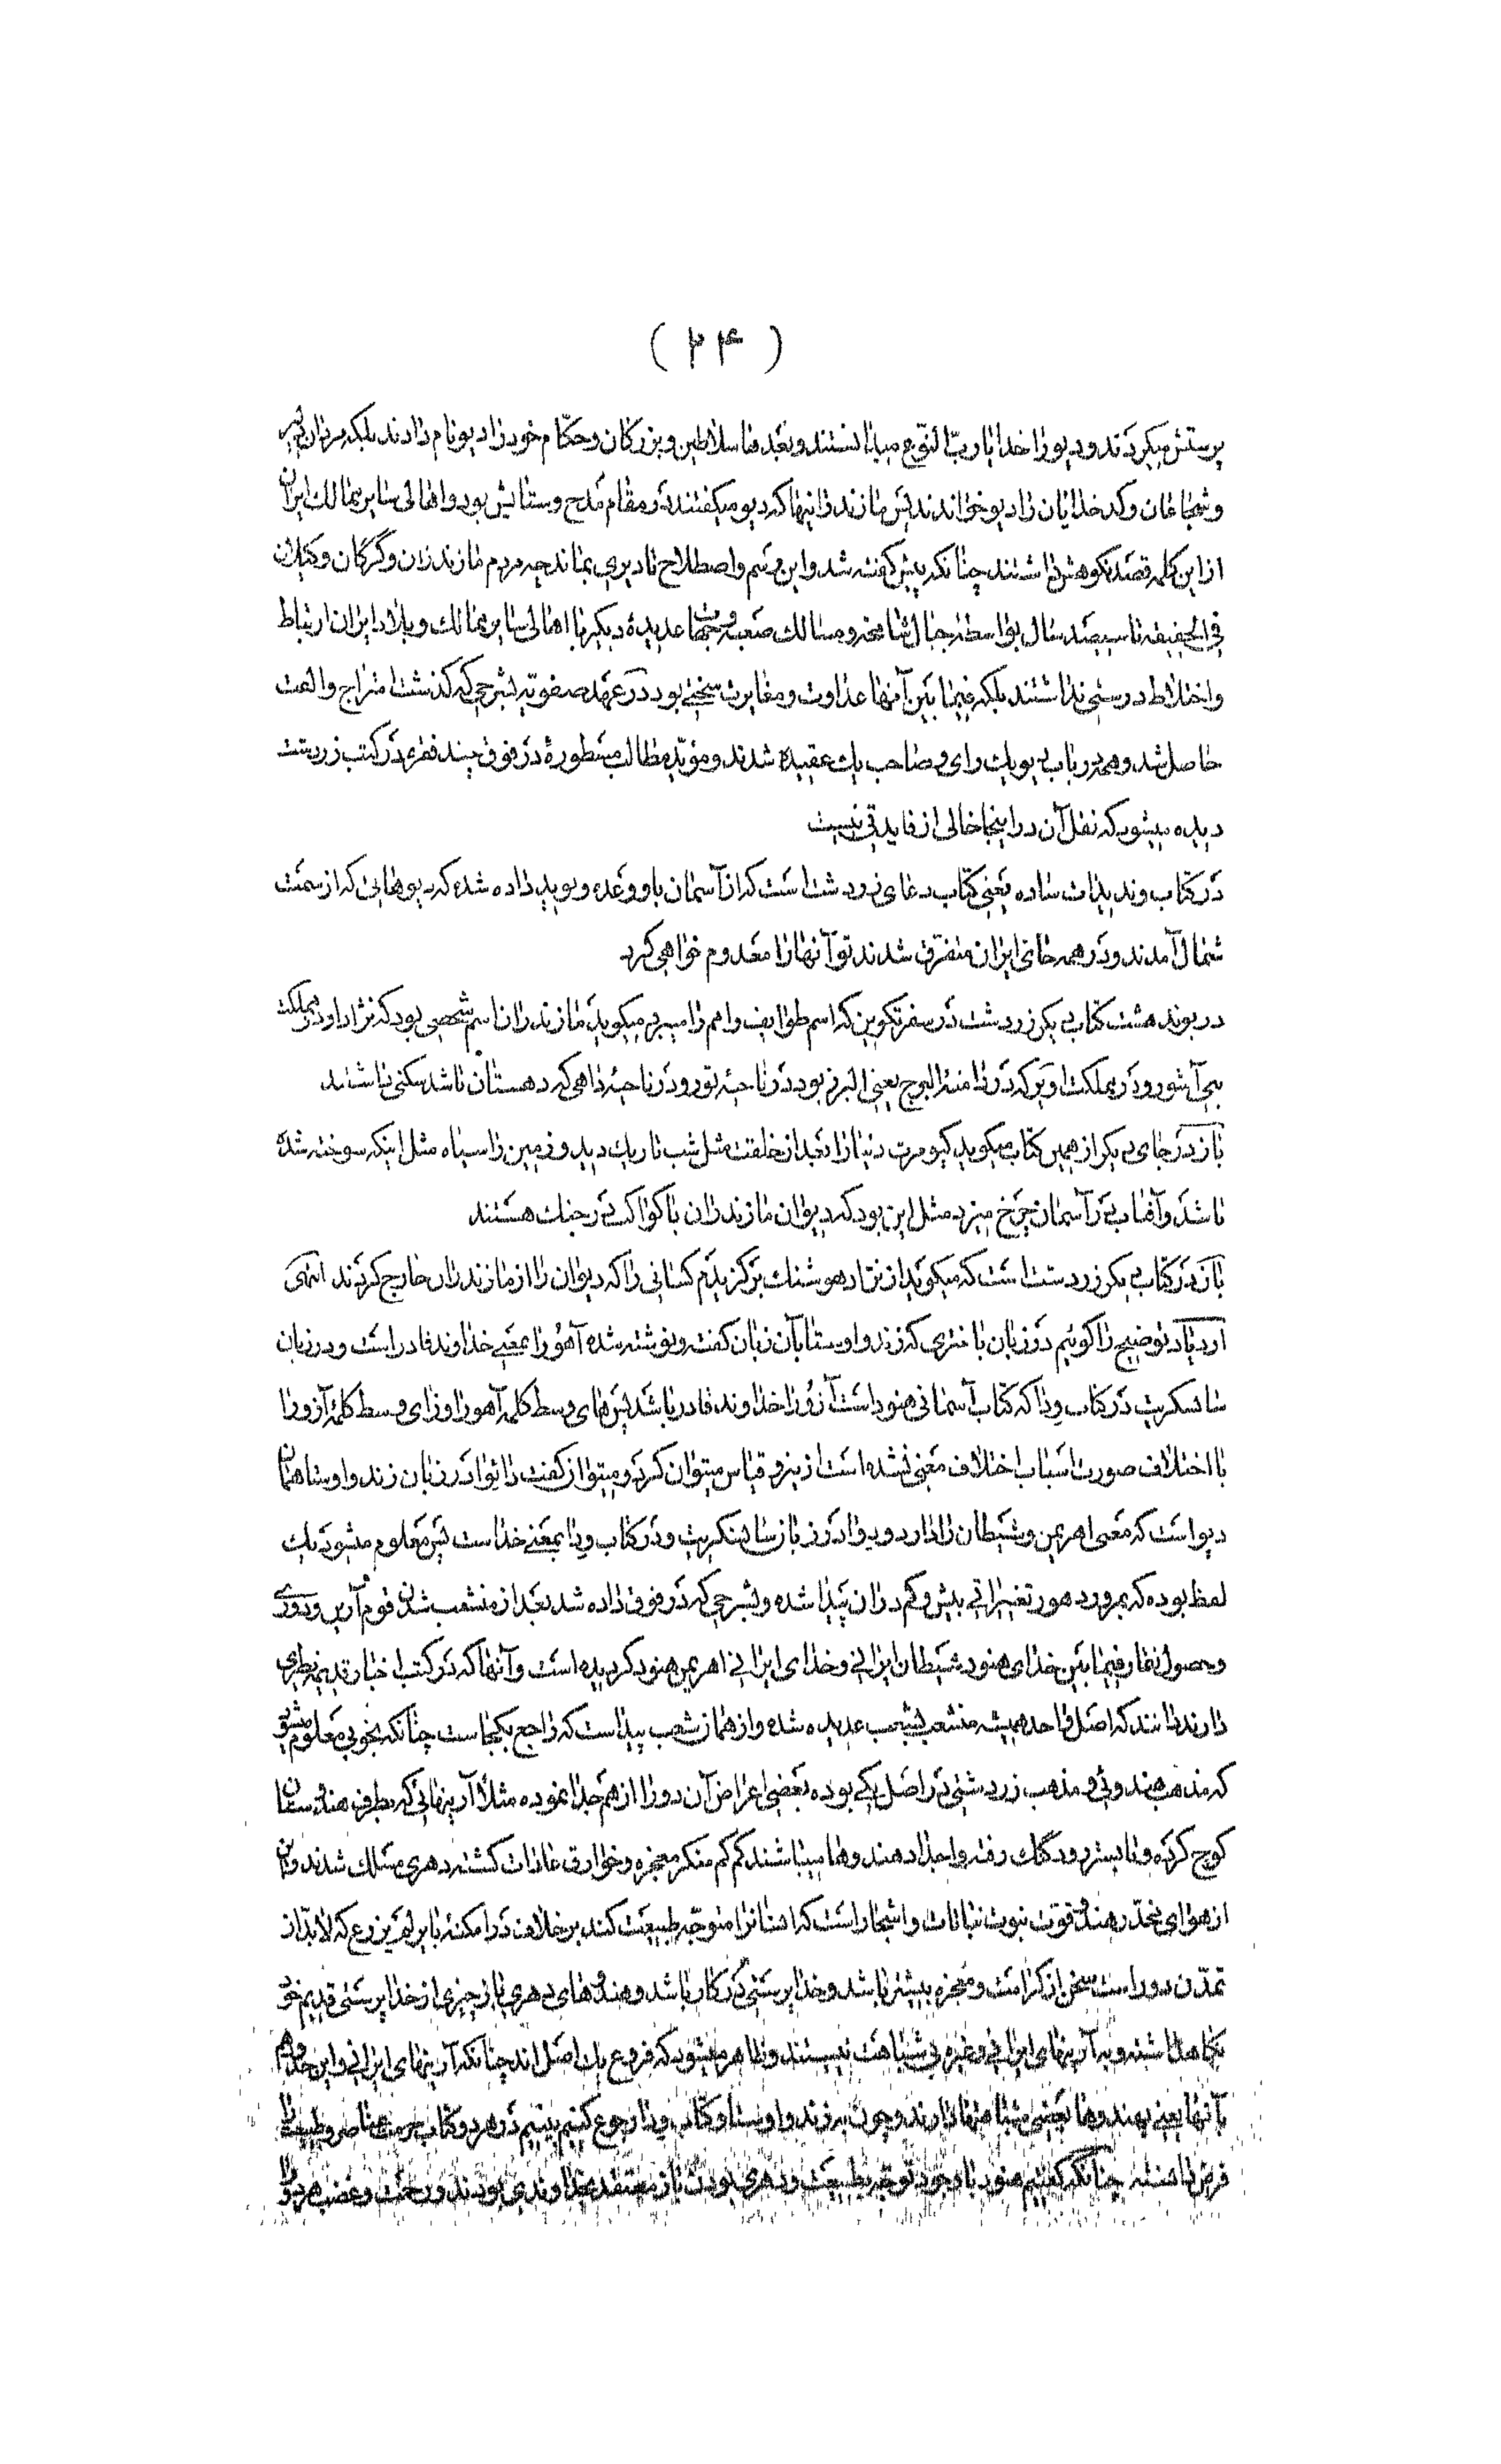 ( ۲۴ )
پرستش میکردند و دیو را خدا یا ربّ النوع میدانستند و بعدها سلاطین و بزرکان و حکّام خود را دیو نام دادند بلکه مردان دلیر
و شجاعان و کدخدایان را دیو خواندند پس مازندرانیها که دیو میکفتند در مقام مدح و ستایش بود و اهالی سایر ممالک ایران
از این کلمه قصد نکوهش داشتند چنانکه پیش کفته شد و این رسم و اصطلاح تا دیری بماند چه مردم مازندران و گرگان و کیلان
فی الحقیقه تا سیصد سال بواسطه جبال شامخه و مسالک صعبه و جهات عدیدۀ دیکر با اهالی سایر ممالک و بلاد ایران ارتباط
و اختلاط درستی نداشتند بلکه فیما بین آنها عداوت و مغایرت سختی بود در عهد صفویه بشرحی که کذشت امتزاج و الفت
حاصل شد و همه در باب دیو یک رای و صاحب یک عقیده شدند و مؤیّد مطالب مسطورۀ در فوق چند فقره در کتب زردشت
دیده میشود که نقل آن در اینجا خالی از فایدتی نیست
در کتاب وندیدات ساده یعنی کتاب دعای زردشت است که از آسمان باو وعده و نوید داده شده که دیوهائی که از سمت
شمال آمدند و در همه جای ایران متفرق شدند تو آنها را معدوم خواهی کرد
در بوندهشت کتاب دیکر زردشت در سفر تکوین که اسم طوایف و امم را میبرد میکوید مازندران اسم شخصی بود که نژاد او در مملکت
و در مملکت که در دامنۀ البرج یعنی البرز بود در ناحیۀ تور و در ناحیۀ داهی که دهستان باشد سکنی داشتند
باز در جای دیکر از همین کتاب میکوید کیومرث دنیا را بعد از خلقت مثل شب تاریک دید و زمین را سیاه مثل اینکه سوخته شده
باشد و آفتاب در آسمان چرخ میزد مثل این بود که دیوان مازندران با کواکب در جنک هستند
باز در کتاب دیکر زردشت است که میکوید از نژاد هوشنک برکزیدم کسانی را که دیوان را از مازندران خارج کردند انتهی
ازدیاد توضیح را کوئیم در زبان باختری که زند و اوستا بآن زبان کفته و نوشته شده آهورا بمعنی خداوند قادر است و در زبان
سانسکریت در کتاب ودا که کتاب آسمانی هنود است آزورا خداوند قادر باشد پس های وسط کلمه آهورا و زای وسط کلمۀ آزورا
با اختلاف صورت اسباب اختلاف معنی نشده است از اینرو قیاس میتوان کرد و میتوان کفت دائوا در زبان زند و اوستا همان
دیو است که معنی اهریمن و شیطان را دارد و دیوا در زبان سانسکریت و در کتاب ودا بمعنی خداست پس معلوم میشود یک
لفظ بوده که بمرور دهور تغییراتی بیش و کم در آن پیدا شده و بشرحی که در فوق داده شد بعد از منشعب شدن قوم آرین و دوری
و حصول نقار فیما بین خدای هنود شیطان ایرانی و خدای ایرانی اهریمن هنود کردیده است و آنها که در کتب اخبار قدیمه نظری
دارند دانند که اصل واحد همیشه منشعب بشعب عدیده شده و از همان شعب پیداست که راجع بکجاست چنانکه بخوبی معلوم میشود
که مذهب هندوئی و مذهب زردشتی در اصل یکی بوده بعضی اعراض آن دو را از هم جدا نموده مثلاً آرینهائی که بطرف هندوستان
کوچ کرده و تا بستر رود کنک رفته و اجداد هندوها میباشند کم کم منکر معجزه و خوارق عادات کشته دهری مسلک شدند و این
از هوای مخدّر هند و قوت نبوت نباتات و اشجار است که انسان را متوجّه طبیعت کند برخلاف در امکنۀ بایر لم یزرع که لابدّ از
تمدّن دور است سخن از کرامت و معجزه بیشتر باشد و خدا پرستی در کار باشد و هندوهای دهری باز چیزی از خدا پرستی قدیم خود
نکاه داشته و بآرینهای ایرانی و غیره بی شباهت نیستند و ظاهر میشود که فروع یک اصل اند چنانکه آرینهای ایرانی و این حدود هم
بآنها یعنی بهندوها بعضی شباهتها دارند و چون بزند و اوستا و کتاب ودا رجوع کنیم بینیم در هر دو کتاب حرمت عناصر و طبیعت را
فرض دانسته چنانکه کفتیم هنود با وجود توجّه بطبیعت و دهری بودن باز معتقد بخداوندی بودند و رحمت و غضب هر دو را